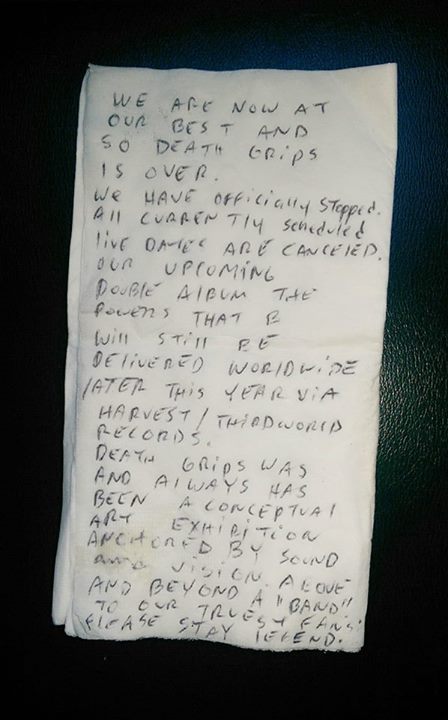 WE ARE NOW AT
OUR BEST AND
SO DEATH GRIPS
IS OVER.
WE HAVE OFFICIALLY STOPPED.
ALL CURRENTLY SCHEDULED
LIVE DATES ARE CANCELED.
OUR UPCOMING
DOUBLE ALBUM THE
POWERS THAT B
WILL STILL BE
DELIVERED WORLDWIDE
LATER THIS YEAR VIA
HARVEST/THIRDWORLD
RECORDS.
DEATH GRIPS WAS
AND ALWAYS HAS
BEEN A CONCEPTUAL
ART EXHIBITION
ANCHORED BY SOUND
AND VISION. ABOVE
AND BEYOND A "BAND"
TO OUR TRUEST FANS.
PLEASE STAY LEGEND.